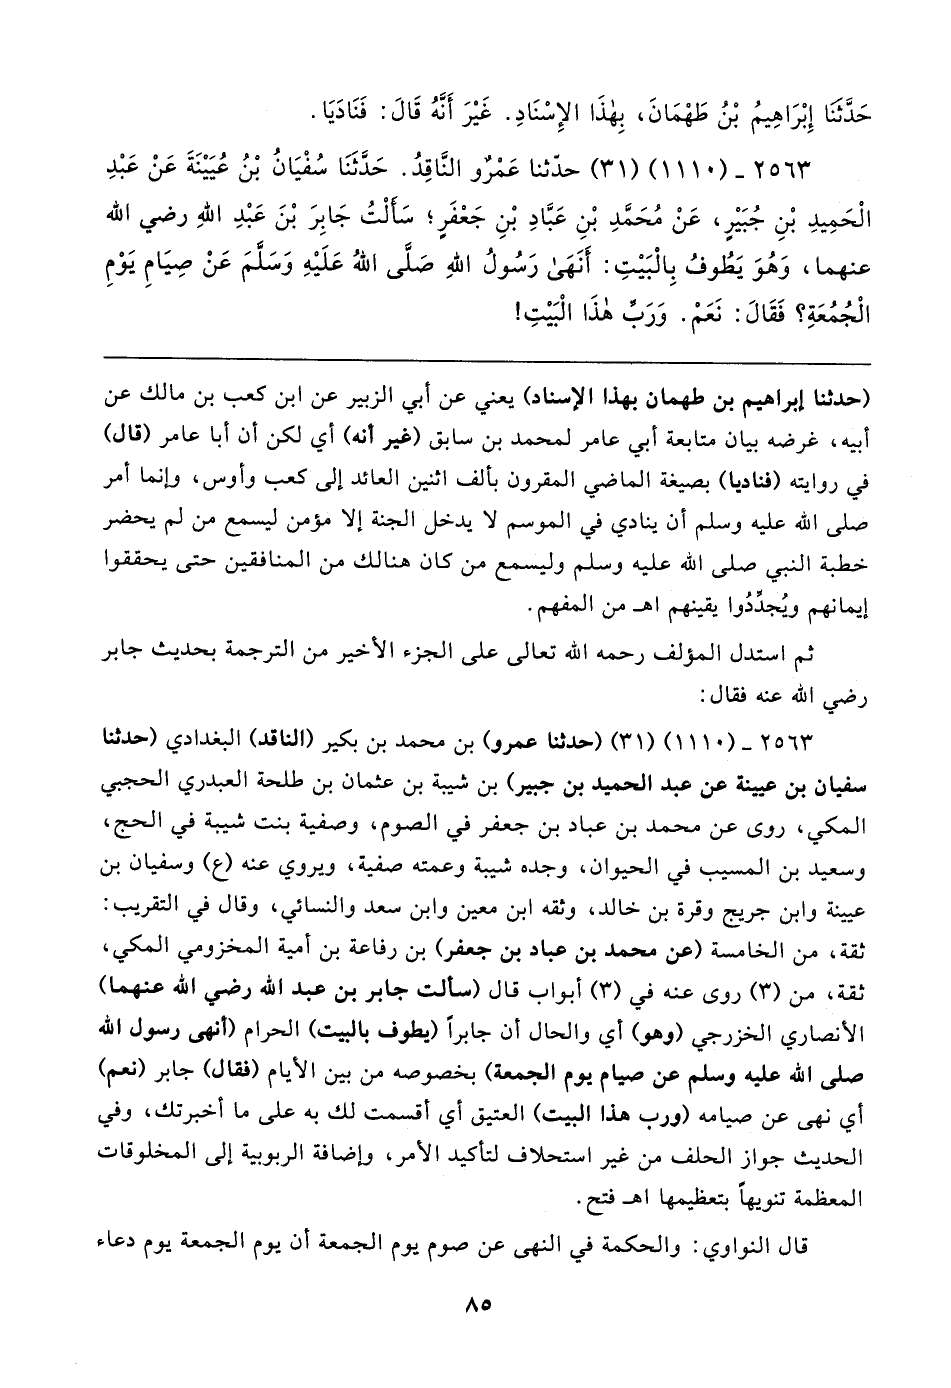 حَدَّثَنَا إِبْرَاهِيمُ بْنُ طَهْمَانَ، بِهٰذَا الإِسْنَادِ. غَيْرَ أَنَّهُ قَالَ: فَنَادَيَا.
٢٥٦٣ ـ (١١١٠) (٣١) حدّثنا عَمْرٌو النَّاقِدُ. حَدَّثَنَا سُفْيَانُ بْنُ عُيَيْنَةَ عَنْ عَبْدِ
الْحَمِيدِ بْنِ جُبَيْرٍ، عَنْ مُحَمَّدِ بْنِ عَبَّادِ بْنِ جَعْفَرٍ؛ سَأَلْتُ جَابِرَ بْنَ عَبْدِ اللهِ رضي الله
عنهما، وَهُوَ يَطُوفُ بِالْبَيْتِ: أَنَهَىٰ رَسُولُ اللهِ صَلَّى اللهُ عَلَيْهِ وَسَلَّمَ عَنْ صِيَامِ يَوْمِ
الْجُمُعَةِ؟ فَقَالَ: نَعَمْ. وَرَبِّ هٰذَا الْبَيْتِ!
(حدثنا إبراهيم بن طهمان بهذا الإسناد) يعني عن أبي الزبير عن ابن كعب بن مالك عن
أبيه، غرضه بيان متابعة أبي عامر لمحمد بن سابق (غير أنه) أي لكن أن أبا عامر (قال)
في روايته (فناديا) بصيغة الماضي المقرون بألف اثنين العائد إلى كعب وأوس، وإنما أمر
صلى الله عليه وسلم أن ينادي في الموسم لا يدخل الجنة إلا مؤمن ليسمع من لم يحضر
خطبة النبي صلى الله عليه وسلم وليسمع من كان هنالك من المنافقين حتى يحققوا
إيمانهم ويُجدِّدُوا يقينهم اهـ من المفهم.
ثم استدل المؤلف رحمه الله تعالى على الجزء الأخير من الترجمة بحديث جابر
رضي الله عنه فقال:
٢٥٦٣ ـ (١١١٠) (٣١) (حدثنا عمرو) بن محمد بن بكير (الناقد) البغدادي (حدثنا
سفيان بن عيينة عن عبد الحميد بن جبير) بن شيبة بن عثمان بن طلحة العبدري الحجبي
المكي، روى عن محمد بن عباد بن جعفر في الصوم، وصفية بنت شيبة في الحج،
وسعيد بن المسيب في الحيوان، وجده شيبة وعمته صفية، ويروي عنه (ع) وسفيان بن
عيينة وابن جريج وقرة بن خالد، وثقه ابن معين وابن سعد والنسائي، وقال في التقريب:
ثقة، من الخامسة (عن محمد بن عباد بن جعفر) بن رفاعة بن أمية المخزومي المكي،
ثقة، من (٣) روى عنه في (٣) أبواب قال (سألت جابر بن عبد الله رضي الله عنهما)
الأنصاري الخزرجي (وهو) أي والحال أن جابراً (يطوف بالبيت) الحرام (أنهى رسول الله
صلى الله عليه وسلم عن صيام يوم الجمعة) بخصوصه من بين الأيام (فقال) جابر (نعم)
أي نهى عن صيامه (ورب هذا البيت) العتيق أي أقسمت لك به على ما أخبرتك، وفي
الحديث جواز الحلف من غير استحلاف لتأكيد الأمر، وإضافة الربوبية إلى المخلوقات
المعظمة تنويهاً بتعظيمها اهـ فتح.
قال النواوي: والحكمة في النهى عن صوم يوم الجمعة أن يوم الجمعة يوم دعاء
٨٥